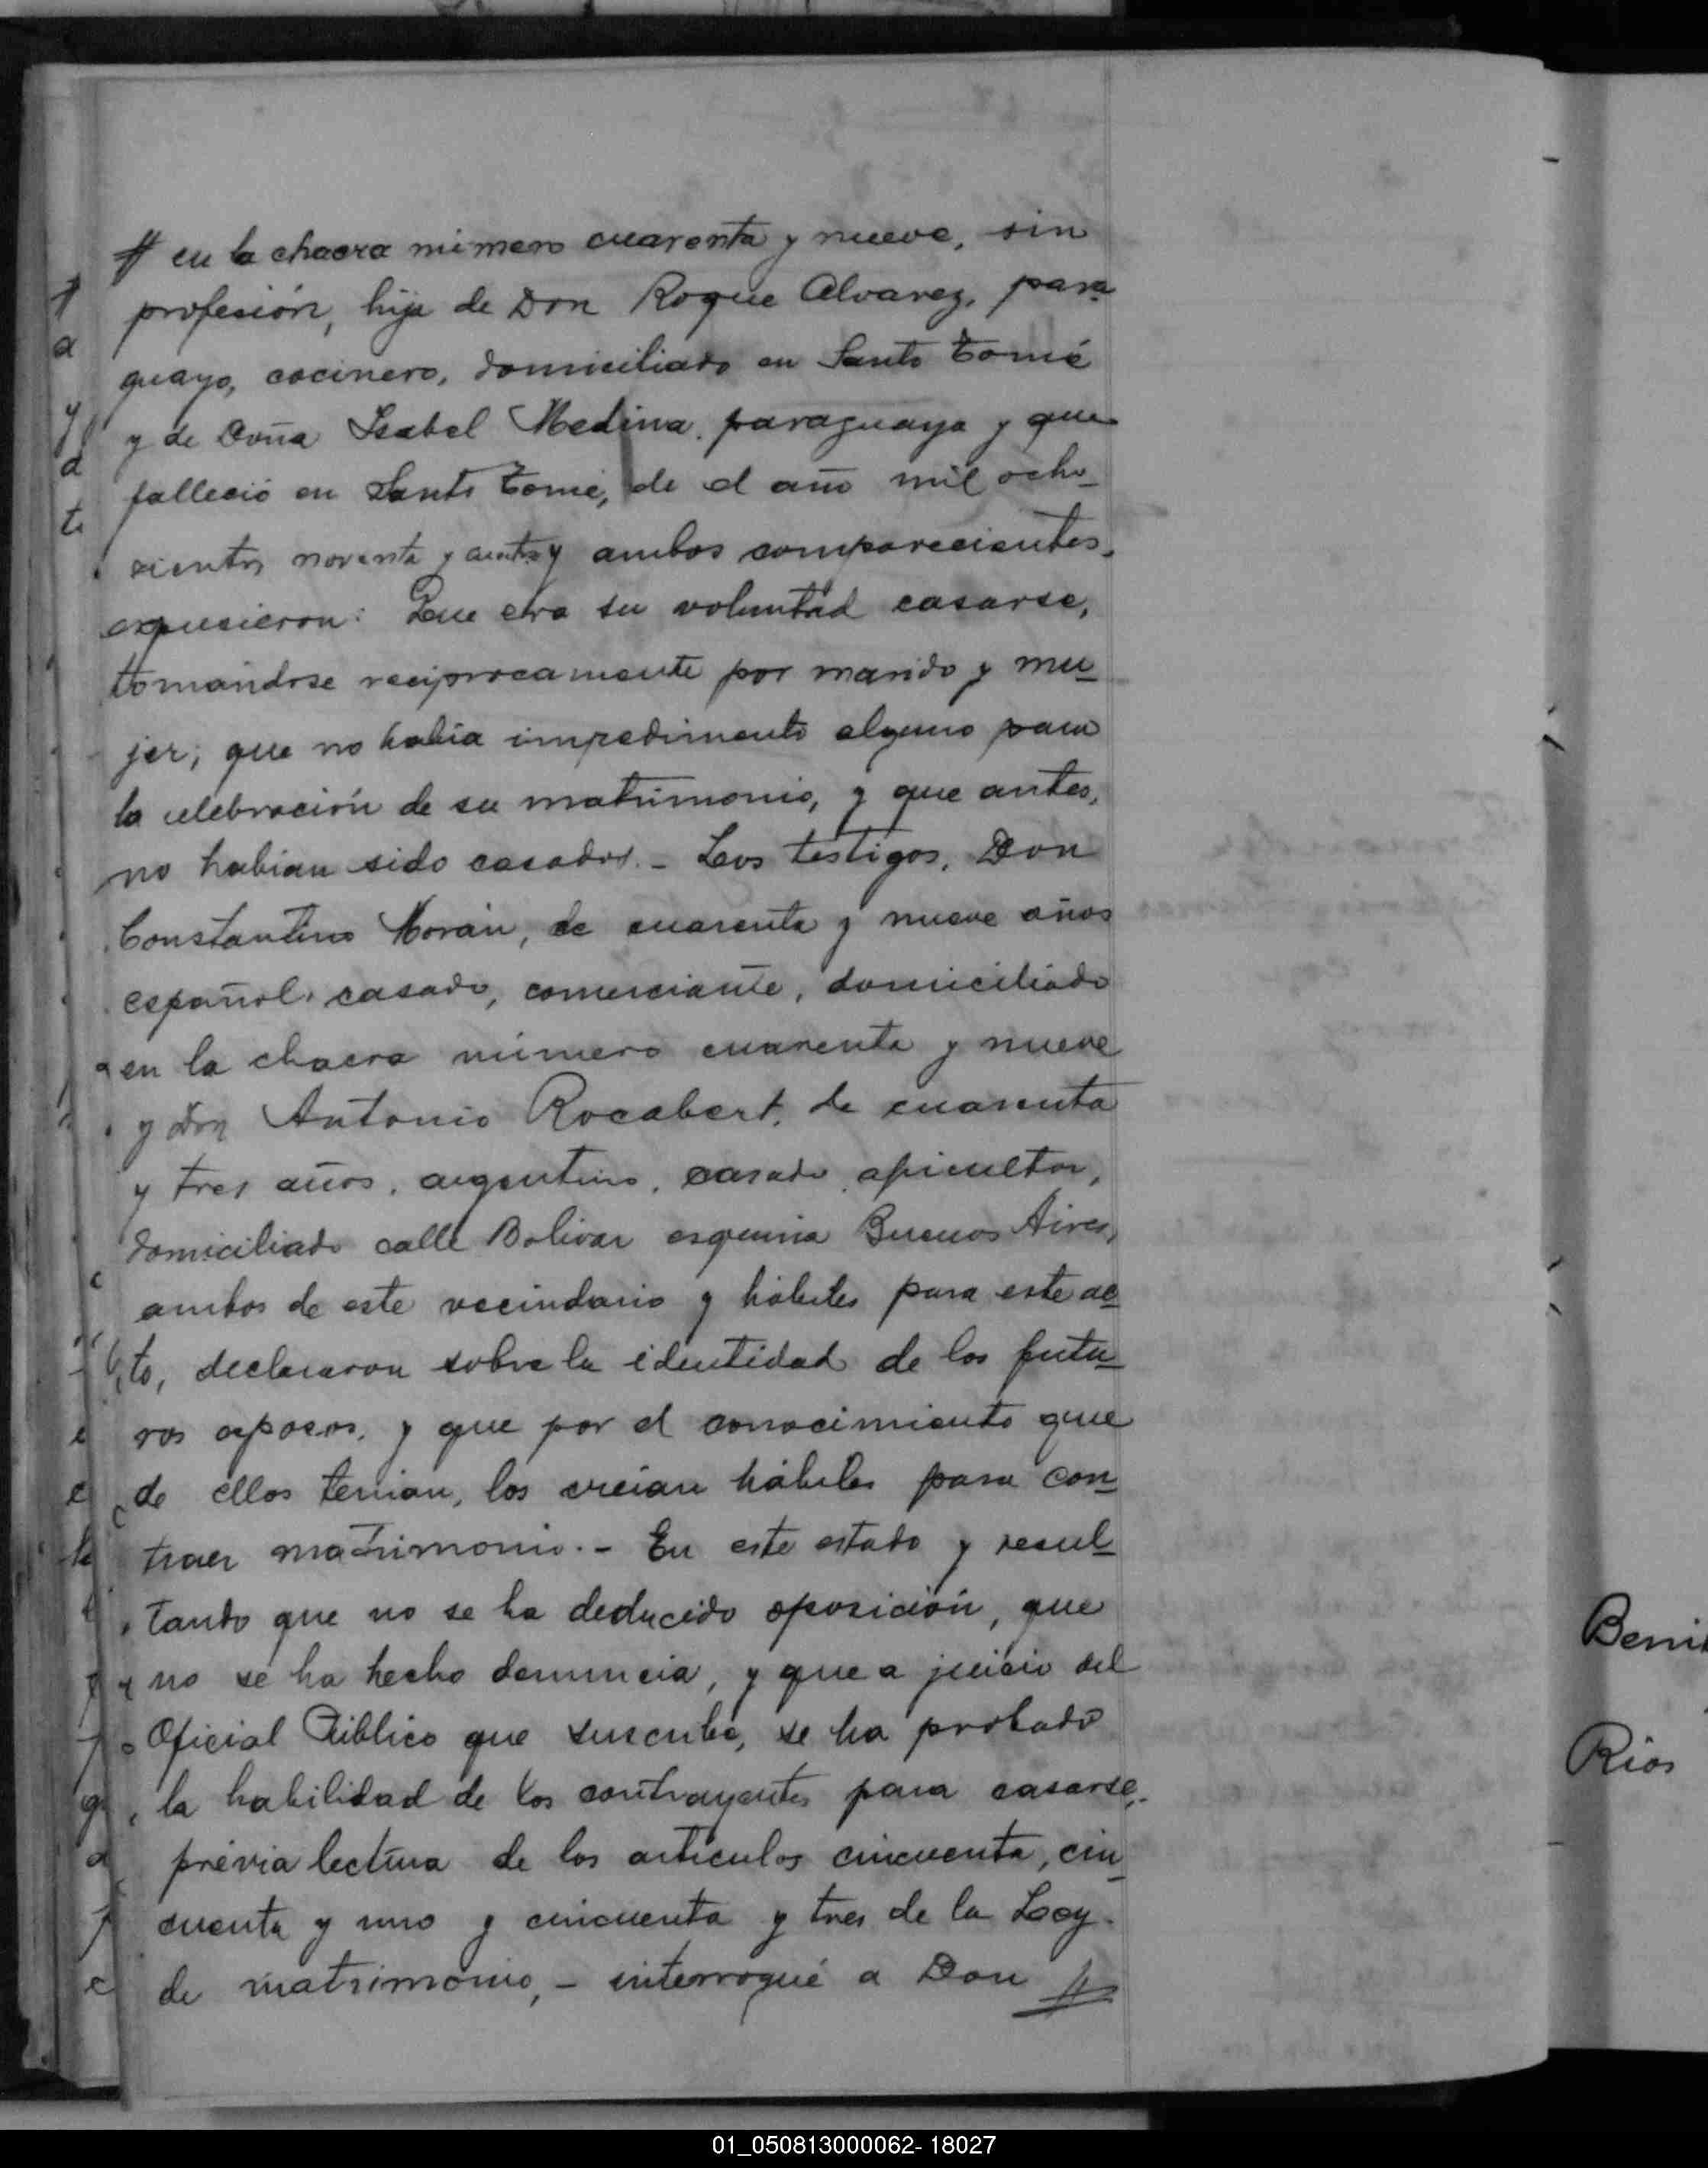 # en la chacra número cuarenta y nueve, sin
profesión, hija de Don Roque Alvarez, para
guayo, cocinero, domiciliado en Santo Tomé
y de Doña Isabel Medina, paraguaya y que
falleció en Santo Tomé, de el año mil ocho-
cientos noventa y cuatro y ambos comparecientes,
expusieron: Que era su voluntad casarse,
tomándose reciprocamente por marido y mu-
jer; que no había impedimento alguno para
la celebración de su matrimonio, y que antes,
no habían sido casados. - Los testigos, Don
Constantino Morán, de cuarenta y nueve años
español, casado, comerciante, domiciliado
en la chacra número cuarenta y nueve
y Don Antonio Rocabert, de cuarenta
y tres años, argentino, casado, apicultor,
domiciliado calle Bolivar esquina Buenos Aires,
ambos de este vecindario y hábiles para este ac-
to, declararon sobre la identidad de los futu-
ros esposos, y que por el conocimiento que
de ellos tenian, los creían hábiles para con-
traer matrimonio. - En este estado y resul-
tando que no se ha deducido oposición, que
no se ha hecho denuncia, y que a juicio del
Oficial Público que suscribe, se ha probado
la habilidad de los contrayentes para casarse,
prévia lectura de los artículos cincuenta, cin-
cuenta y uno y cincuenta y tres de la Ley
de matrimonio, - interrogué a Don #
Rios
01_050813000062- 18027